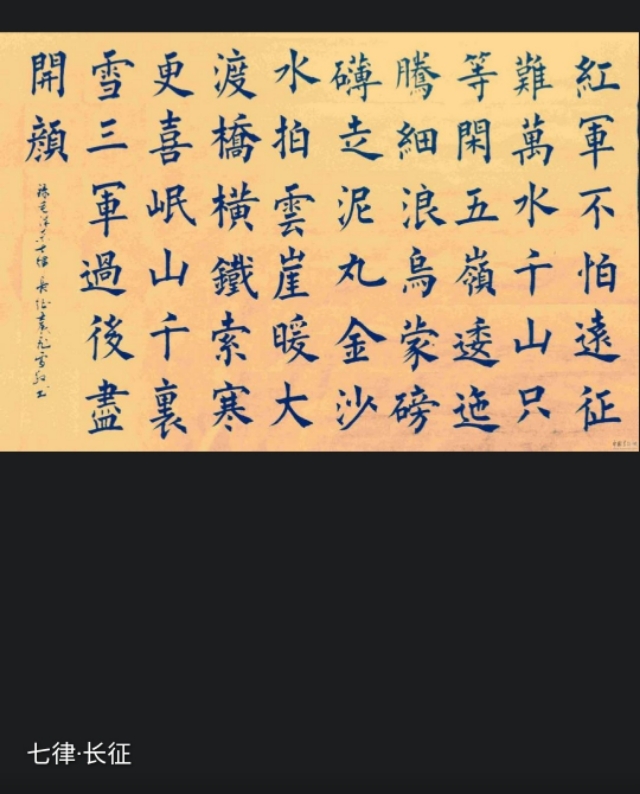 紅軍不怕遠征
難萬水千山只
等閑五嶺逶迤
騰細浪烏蒙磅
礴走泥丸金沙
水拍雲崖暖大
渡橋橫鐵索寒
更喜岷山千裏
雪三軍過後盡
開顔
七律·长征